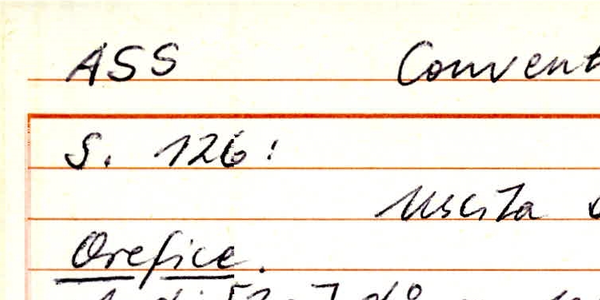 ASS Convent
S. 126:
Uscita
Orefice.